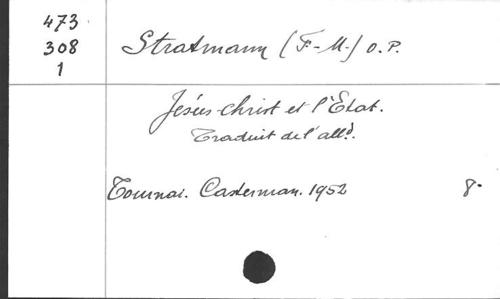 473
308
1
Stratmann (F.-M.) O.P.
Jésus-Christ et l'Etat.
Traduit de l'alld.
Tournai. Casterman. 1952 8.